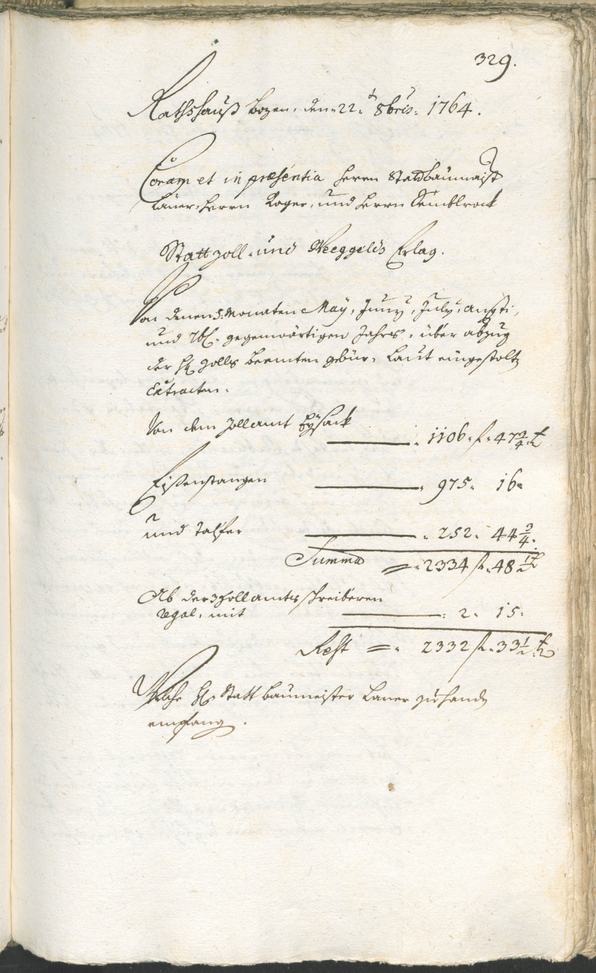 329.
Rathshauß Bozen, den 22.t 8bris: 1764.
Coram et in præsentia Herrn Stattbaumaist
Laner, Herrn Koger, und Herrn
Stattzoll- und Weeggelds Erlag.
Von denen Monaten May, Juny, July, Augusti,
und 7br. gegenwärtigen Jahrs, über abzug
der H. zolls beamten gebür, laut eingestolt
Extracten.
Von dem Zollamt Eysack
1106 f. 47 3/4 x
Eisenstangen 975. 16.
und Talfer 252. 44 3/4.
Summa = 2334 f. 48 1/2 x
Ab der Zollamts schreiberen
regal, mit 2. 15.
Rest = 2332 f. 33 1/2 x
Welche H. Statt baumeister Laner zuhanden
empfang.